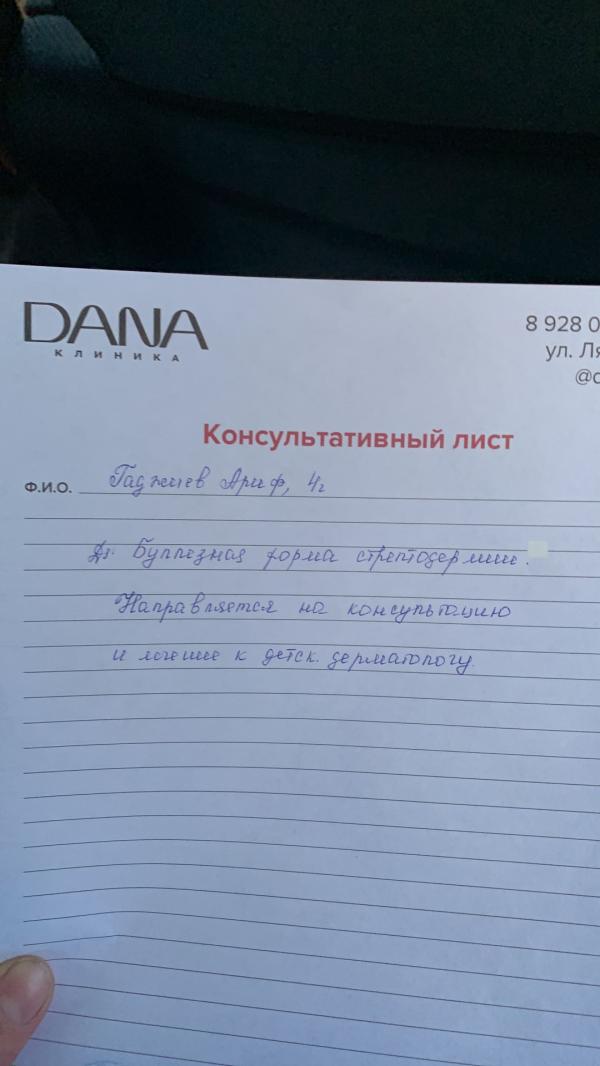 DANA
КЛИНИКА
8 928 0
ул. Ля
@
Консультативный лист
Ф.И.О. Гаджиев Ариф, 4г
Дз: Буллезная форма стрептодермии.
Направляется на консультацию
и лечение к детск. дерматологу.